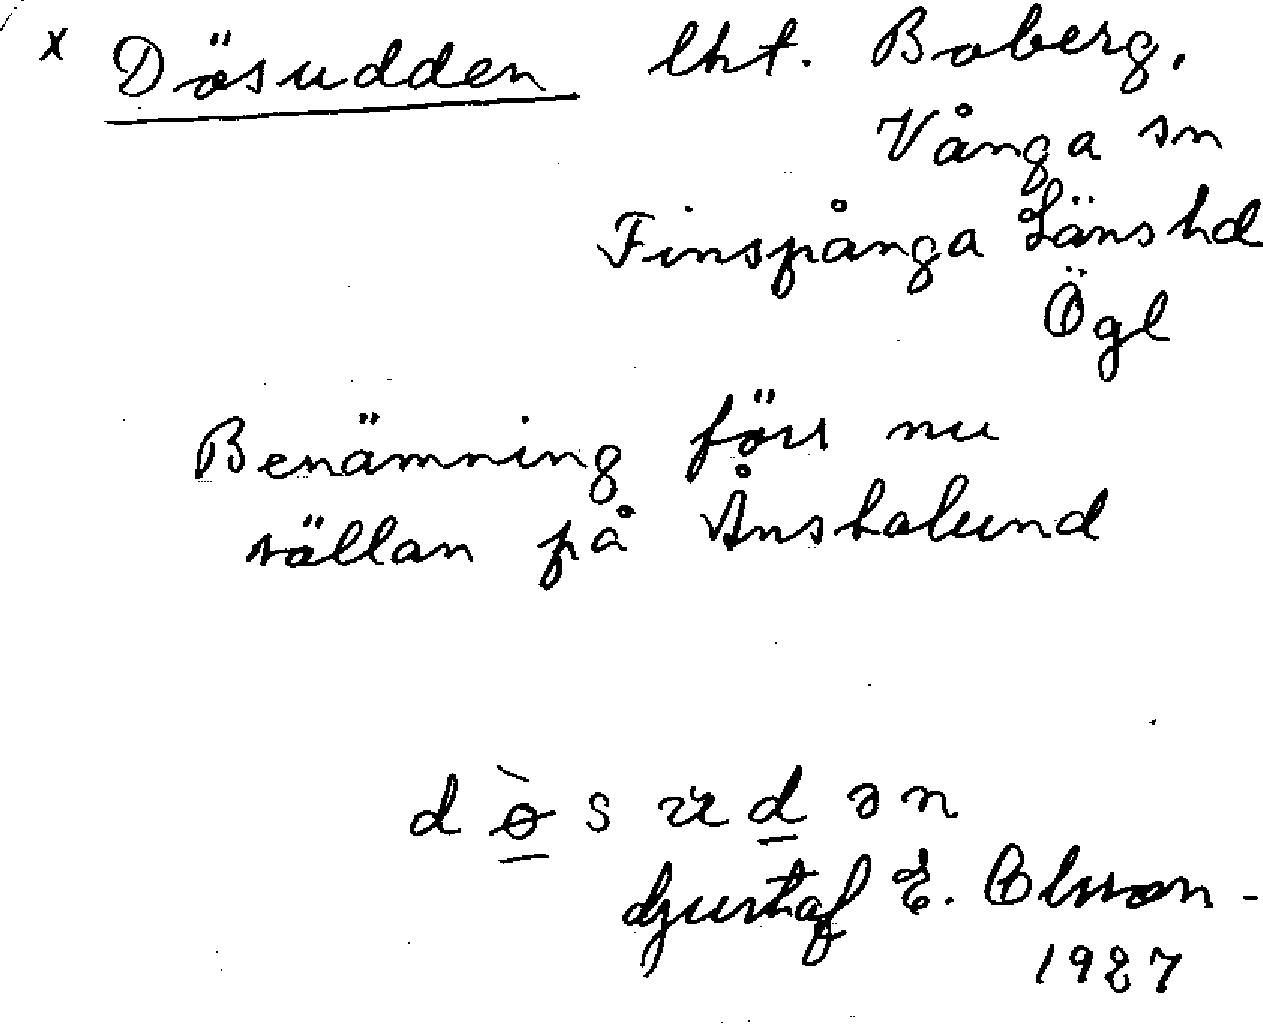 x Dösudden lht. Boberg.
Vånga sn
Finspånga Länshd
Ögl
Benämning förr nu
sällan på Ånskalund
d ø̀ s u d ə n
Gustaf E. Olsson -
1927